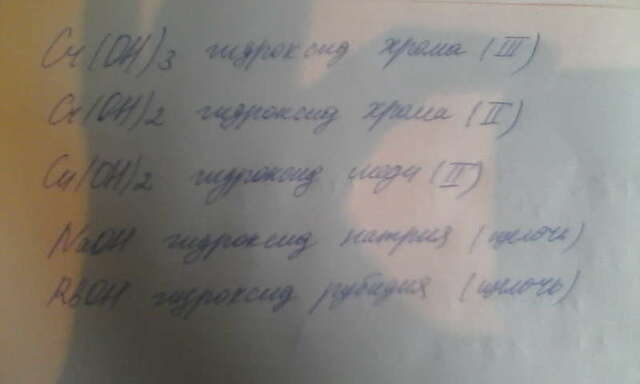 Cr(OH)3 гидроксид хрома (III)
Cr(OH)2 гидроксид хрома (II)
Cu(OH)2 гидроксид меди (II)
NaOH гидроксид натрия (щелочь)
RbOH гидроксид рубидия (щелочь)